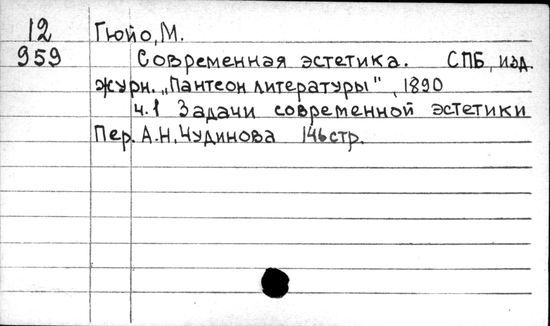 12 Гюйо, М.
959 Современная эстетика. СПБ, изд.
журн. „Пантеон литературы", 1890
ч.1 Задачи современной эстетики
Пер. А.Н. Чудинова 146 стр.